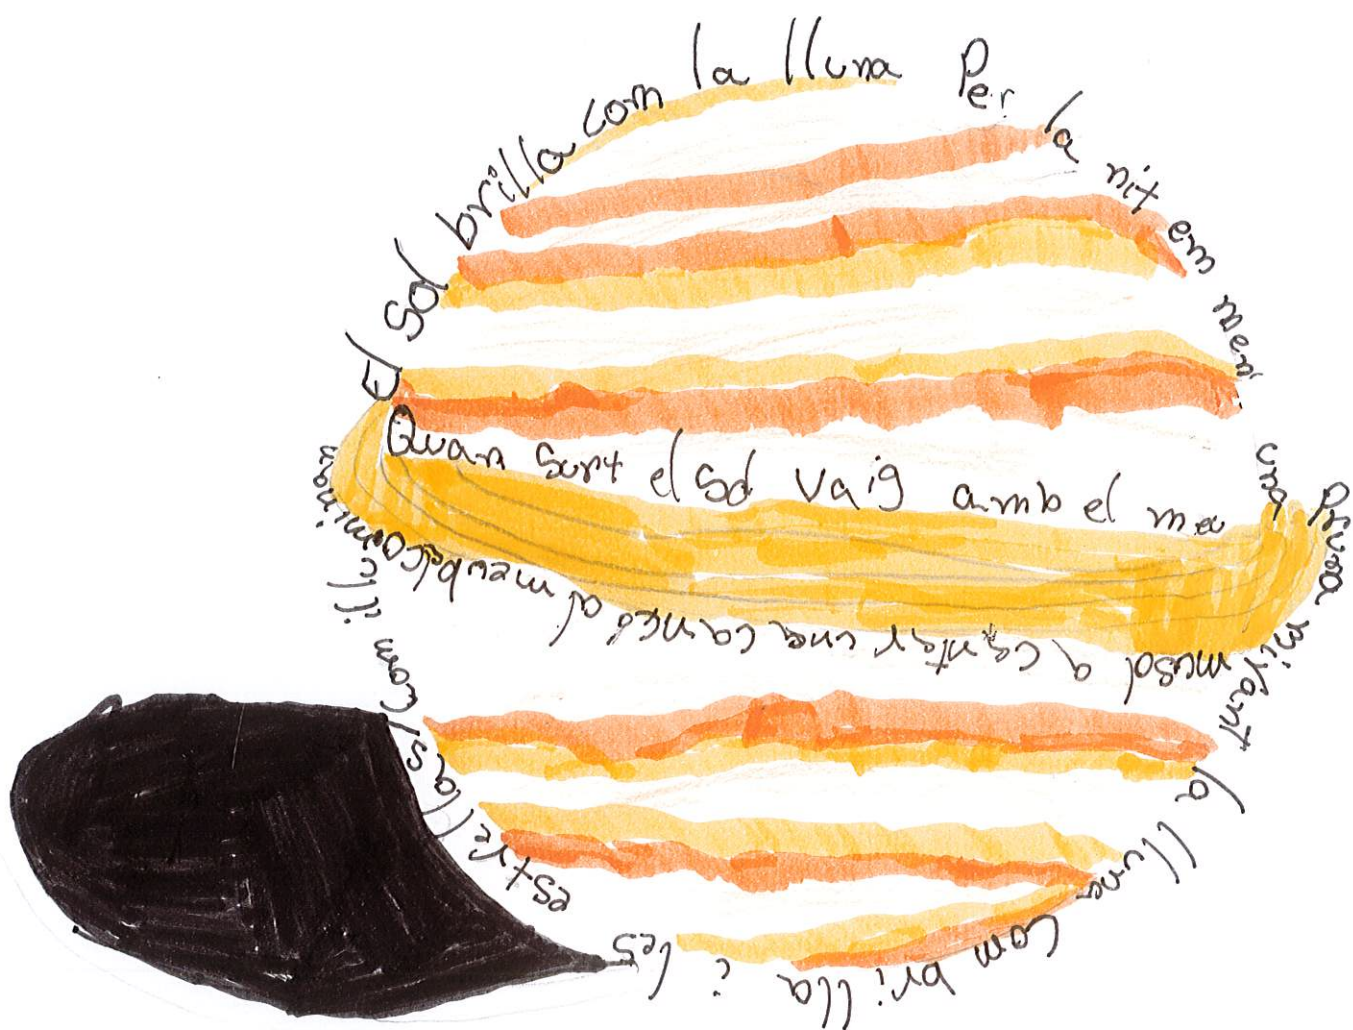 El sol brilla com la lluna Per la nit em una Pruna mirant la lluna com brilla i les estrellas com il·luminan
Quan surt el sol vaig amb el meu musol a cantar una canço al meu balco